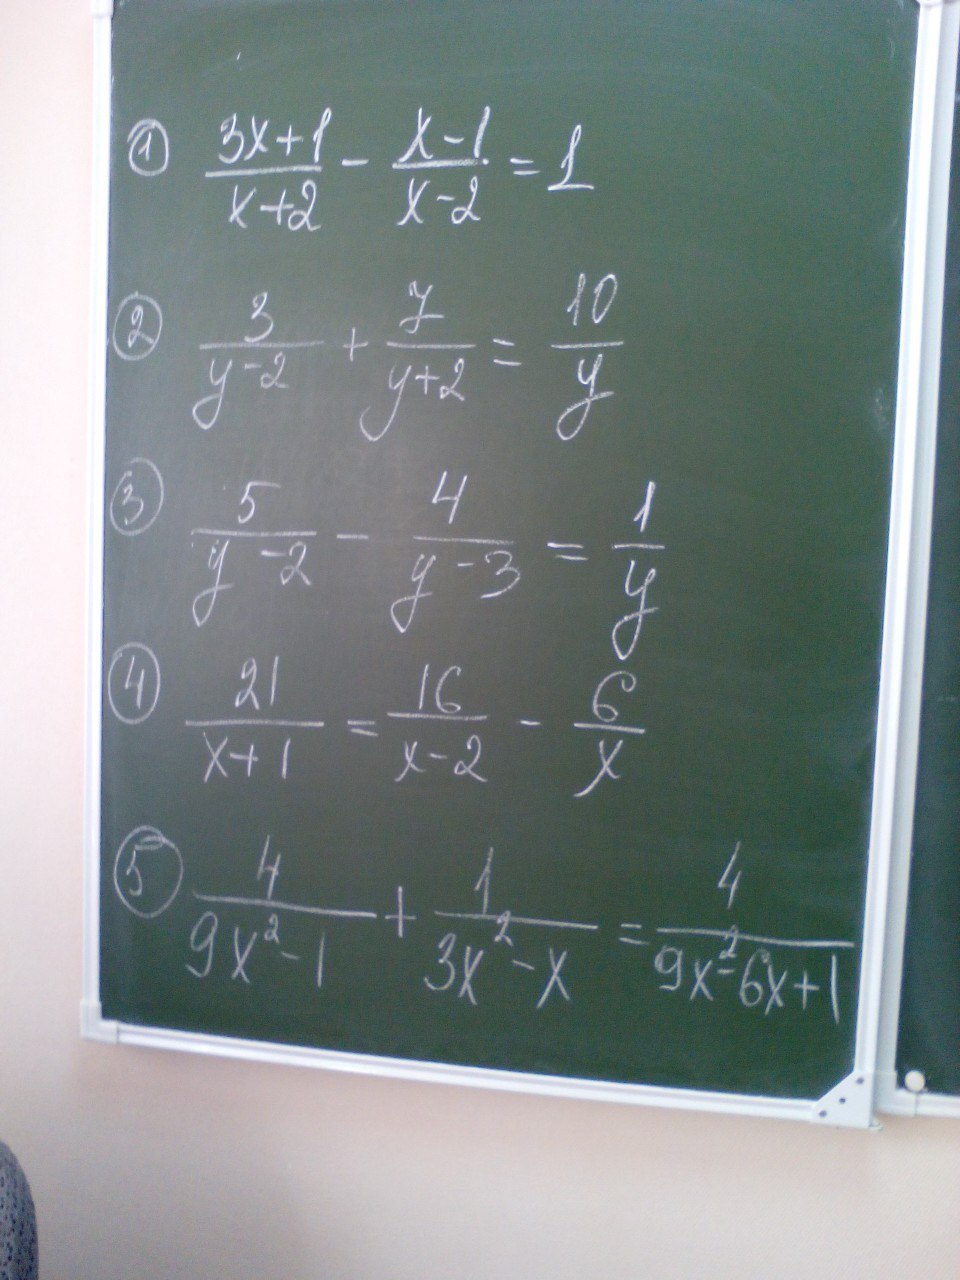 ① (3x+1)/(x+2) - (x-1)/(x-2) = 1
② 3/(y-2) + 7/(y+2) = 10/y
③ 5/(y-2) - 4/(y-3) = 1/y
④ 21/(x+1) = 16/(x-2) - 6/x
⑤ 4/(9x²-1) + 1/(3x²-x) = 4/(9x²-6x+1)